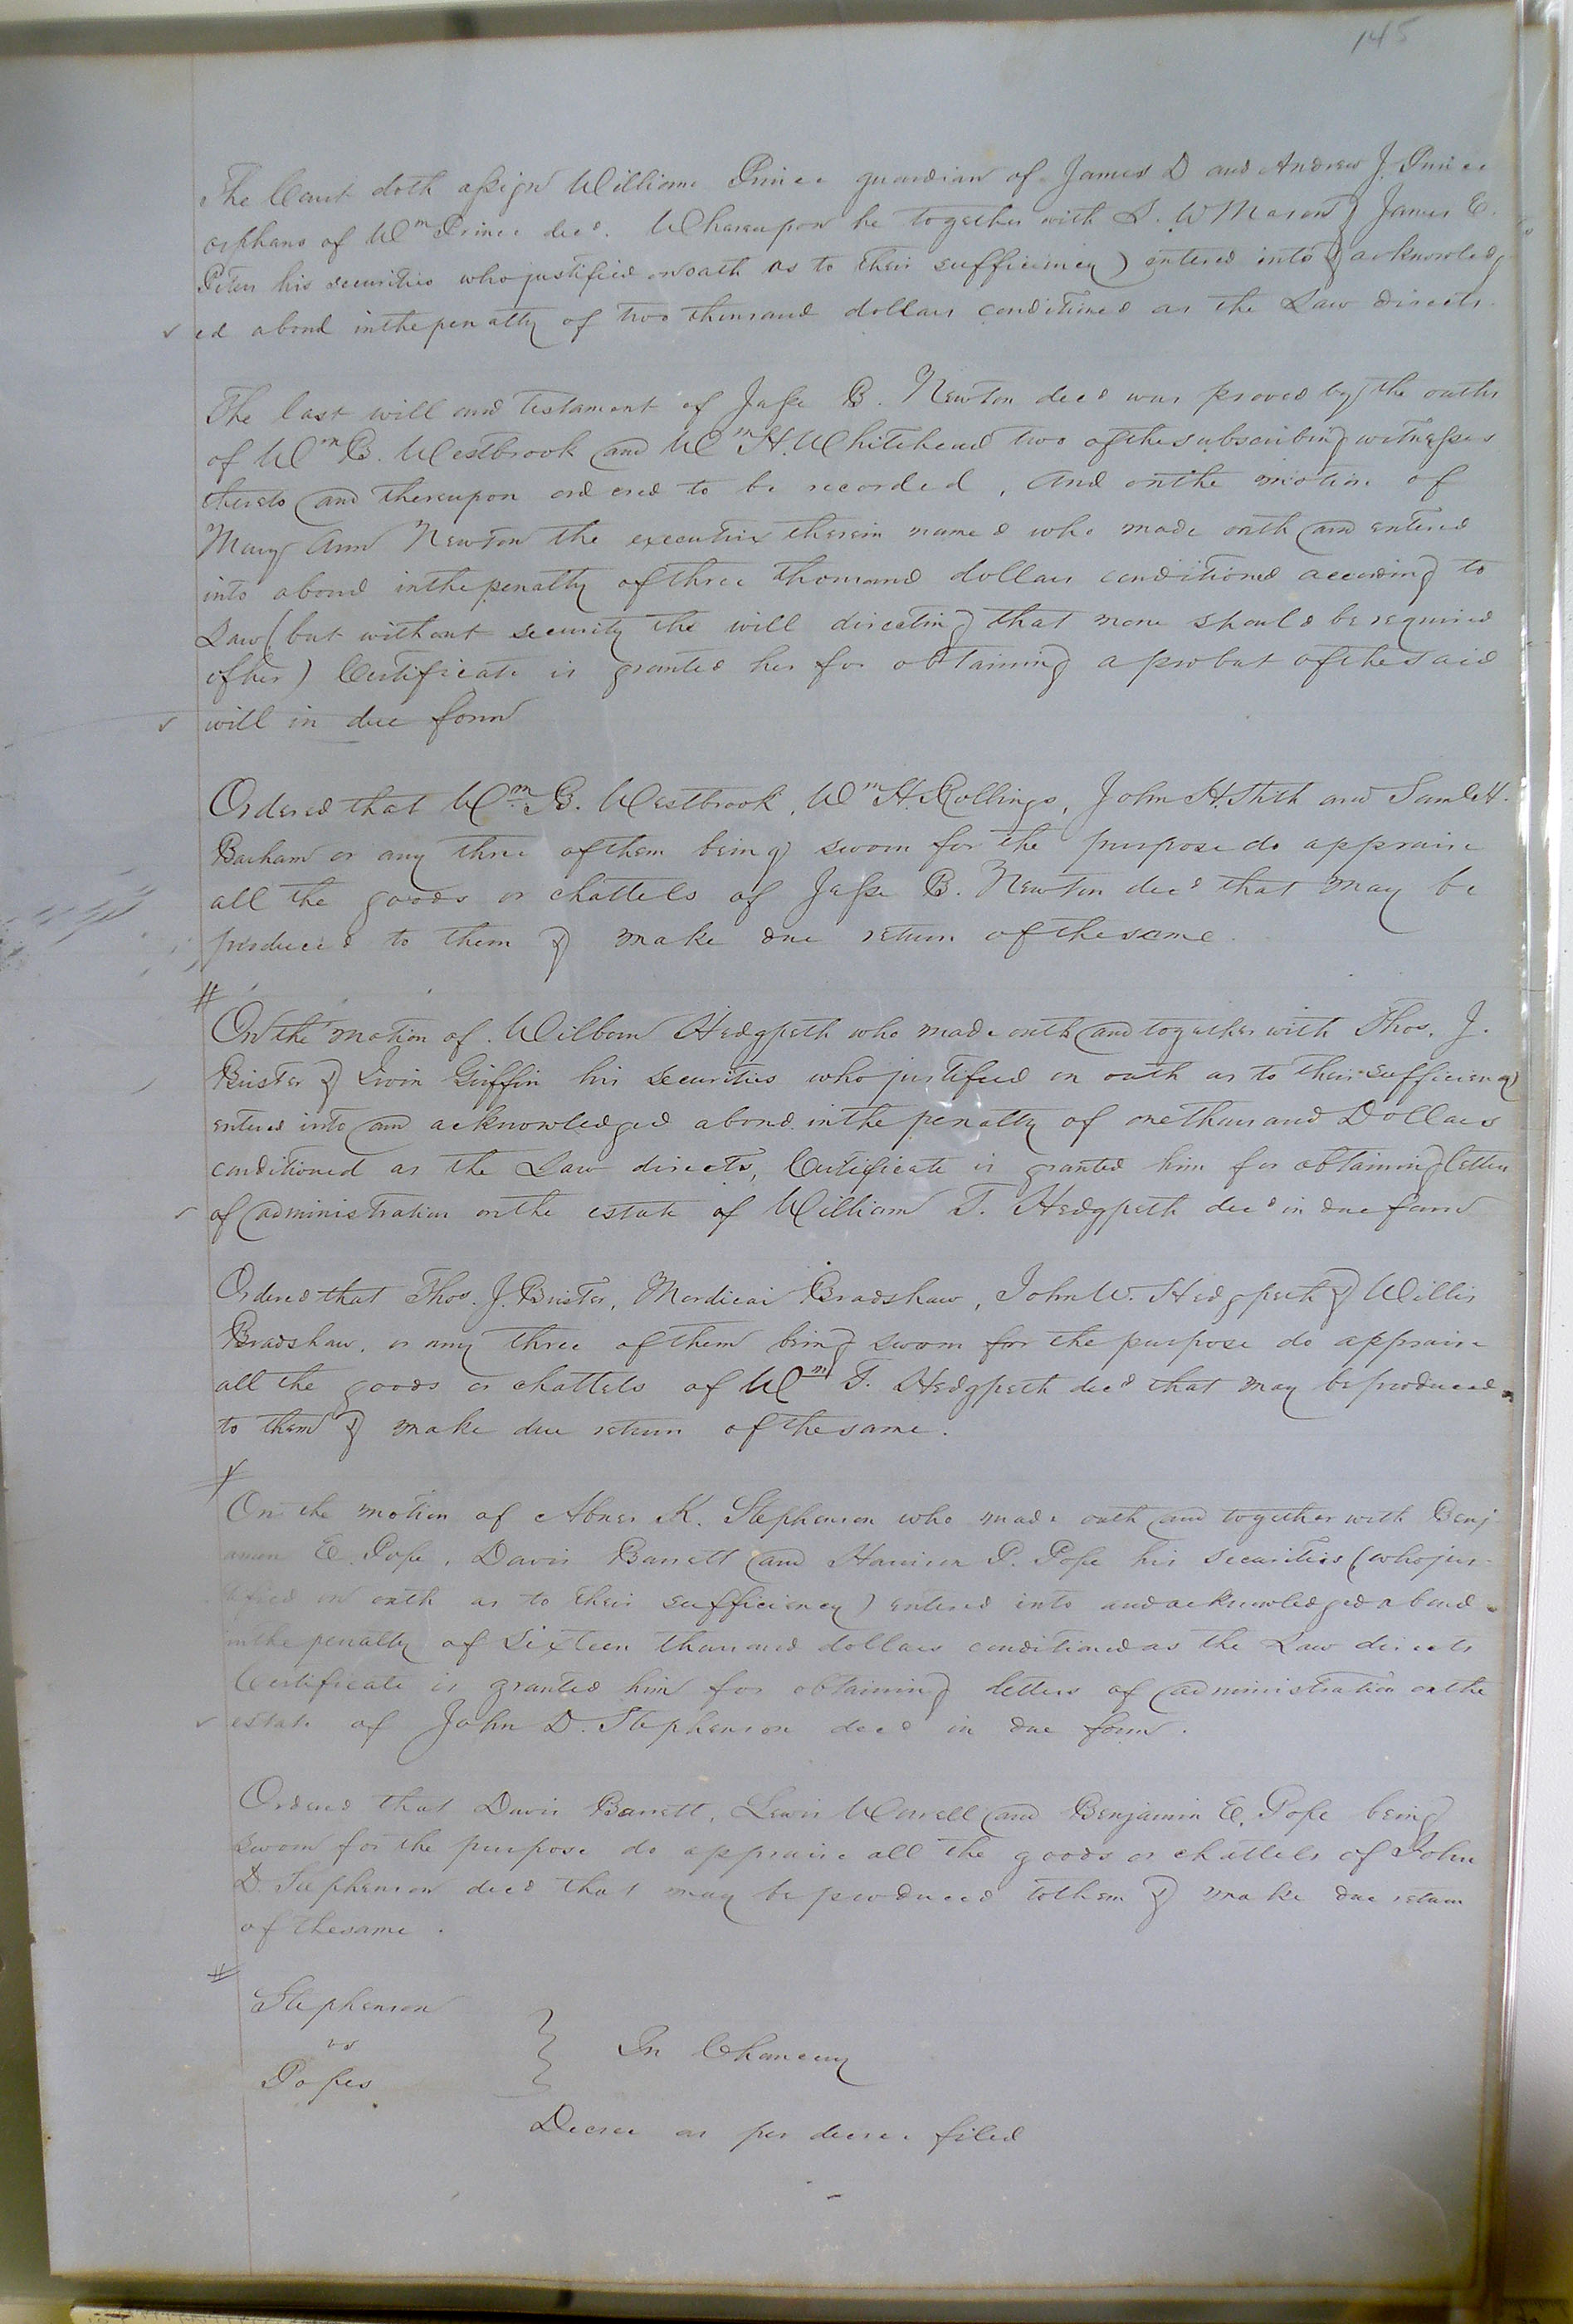 145
The Court doth assign William Prince guardian of James D and Andrew J. Prince
orphans of Wm Prince decd. Whereupon he together with S. W Mason & James E.
Peter his securities who justified on oath as to their sufficiency) entered into & acknowledg-
ed a bond in the penalty of two thousand dollars conditioned as the Law directs.
The last will and testament of Jesse B. Newton decd was proved by the oaths
of Wm B. Westbrook and Wm H. Whitehead two of the subscribing witnesses
thereto and thereupon ordered to be recorded, And on the motion of
Mary Ann Newton the executrix therein named who made oath and entered
into a bond in the penalty of three thousand dollars conditioned according to
Law (but without security the will directing that none should be required
of her) Certificate is granted her for obtaining a probat of the said
will in due form
Ordered that Wm B. Westbrook, Wm H. Rollings, John H. Stith and Saml H.
Barham or any three of them being sworn for the purpose do appraise
all the goods or chattels of Jesse B. Newton decd that may be
produced to them & make due return of the same.
On the motion of Wilborn Hedgpeth who made oath and together with Thos. J.
Brister & Irvin Griffin his securities who justified on oath as to their sufficiency
entered into and acknowledged a bond in the penalty of one thousand Dollars
conditioned as the Law directs, Certificate is granted him for obtaining letters
of administration on the estate of William T. Hedgpeth decd in due form
Ordered that Thos. J. Brister, Mordicai Bradshaw, John W. Hedgpeth & Willis
Bradshaw, or any three of them being sworn for the purpose do appraise
all the goods or chattels of Wm T. Hedgpeth decd that may be produced
to them & make due return of the same.
On the motion of Abner K. Stephenson who made oath and together with Benj-
amin E. Pope, Davis Barrett and Harrison P. Pope his securities (who jus-
tified on oath as to their sufficiency) entered into and acknowledged a bond
in the penalty of Sixteen thousand dollars conditioned as the Law directs
Certificate is granted him for obtaining letters of administration on the
estate of John D. Stephenson decd in due form.
Ordered that Davis Barrett, Lewis Worrell and Benjamin E. Pope being
sworn for the purpose do appraise all the goods or chattels of John
D. Stephenson decd that may be produced to them & make due return
of the same.
Stephenson
vs
Popes
In Chancery
Decree as per decree filed